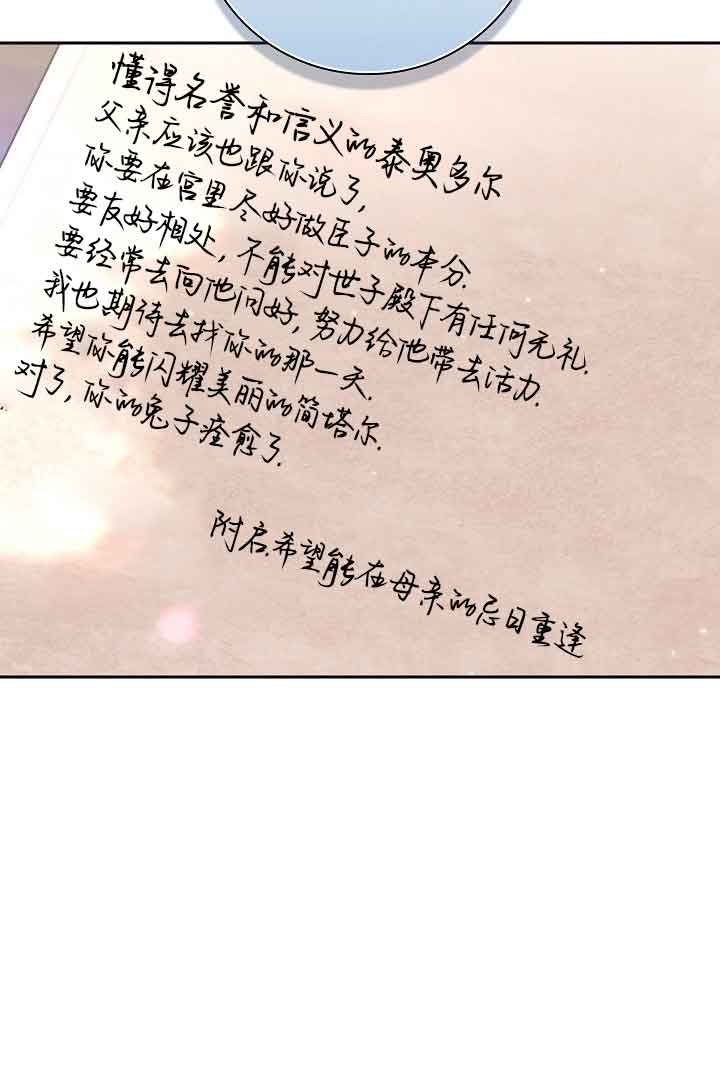 懂得名誉和信义的泰奥多尔
父亲应该也跟你说了,
你要在宫里尽好做臣子的本分.
要友好相处,不能对世子殿下有任何无礼.
要经常去向他问好,努力给他带去活力.
我也期待去找你的那一天.
希望你能闪耀美丽的简塔尔.
对了,你的兔子痊愈了.
附启.希望能在母亲的忌日重逢